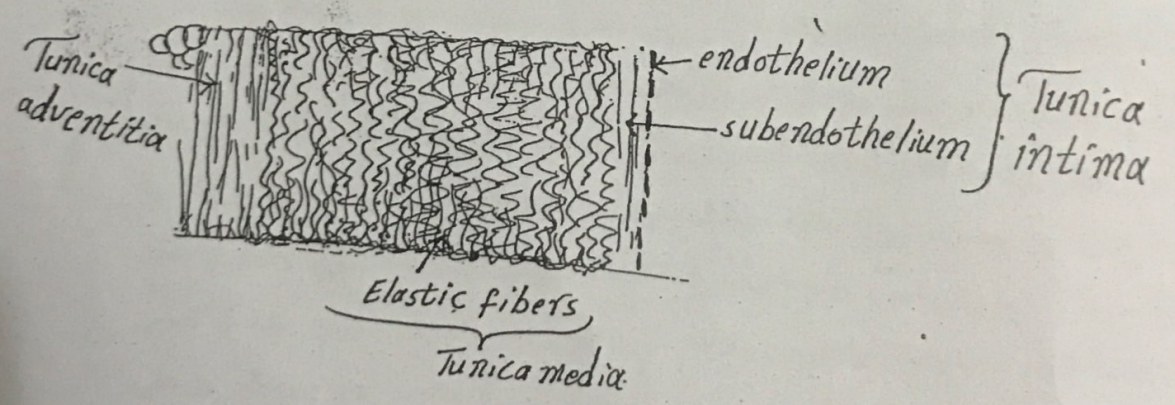 Tunica
adventitia
endothelium
subendothelium
Tunica
intima
Elastic fibers
Tunica media